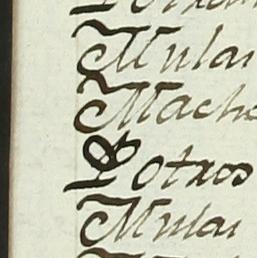 Mulas
Mache
Potros
Mulas